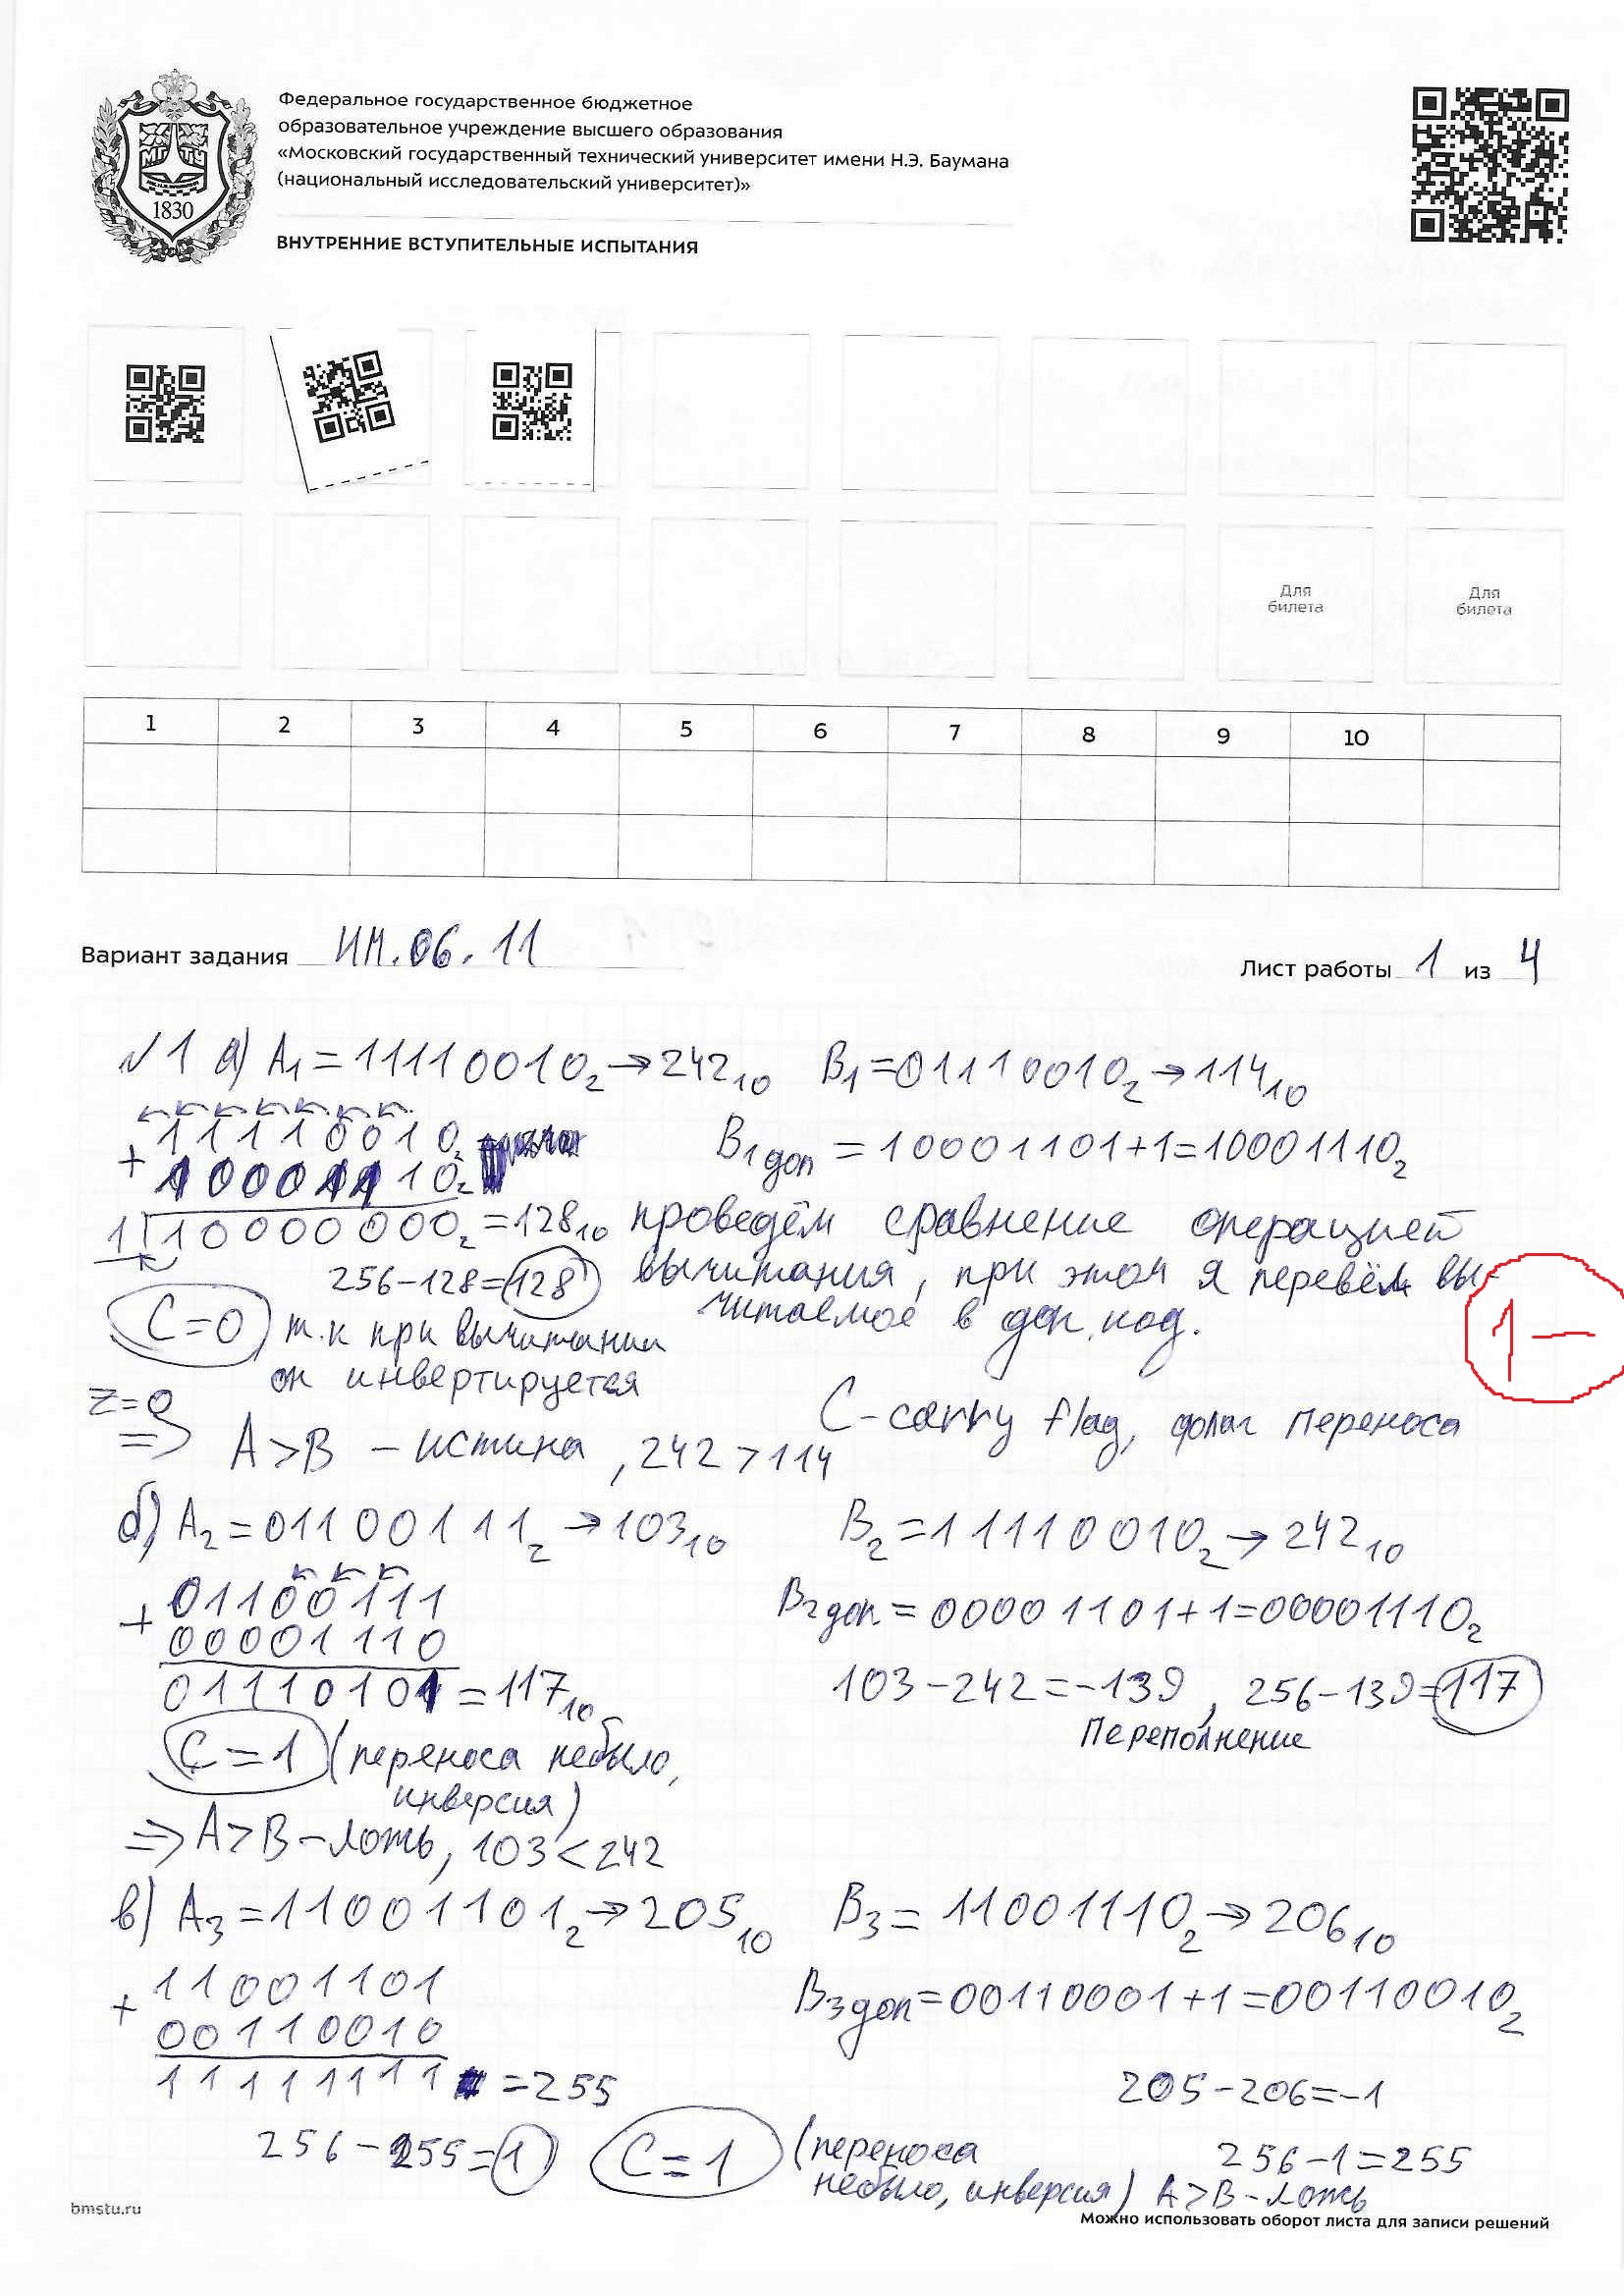 Федеральное государственное бюджетное
образовательное учреждение высшего образования
«Московский государственный технический университет имени Н.Э. Баумана
(национальный исследовательский университет)»
1830
ВНУТРЕННИЕ ВСТУПИТЕЛЬНЫЕ ИСПЫТАНИЯ
Для билета
Для билета
1 2 3 4 5 6 7 8 9 10
Вариант задания ИМ.06.11
Лист работы 1 из 4
№1 а) A₁ = 11110010₂ → 242₁₀ B₁ = 01110010₂ → 114₁₀
11110010₂
+ 10001110₂ B₁доп = 10001101+1=10001110₂
1 10000000₂ = 128₁₀ проведём сравнение операцией
256-128=128 вычитания, при этом я перевём вы-
читаемое в доп. код.
C=0 т.к при вычитании
он инвертируется
1-
Z=0
C-carry flag, флаг переноса
=> A>B - истина, 242>114
б) A₂ = 01100111₂ → 103₁₀ B₂ = 11110010₂ → 242₁₀
01100111
+ 00001110 B₂доп = 00001101+1=00001110₂
01110101 = 117₁₀ 103-242=-139, 256-139=117
Переполнение
C=1 (переноса небыло,
инверсия)
=> A>B - ложь, 103<242
в) A₃ = 11001101₂ → 205₁₀ B₃ = 11001110₂ → 206₁₀
11001101
+ 00110010 B₃доп = 00110001+1=00110010₂
11111111 = 255 205-206=-1
256-255=1 C=1 (переноса 256-1=255
небыло, инверсия) A>B - ложь
bmstu.ru
Можно использовать оборот листа для записи решений